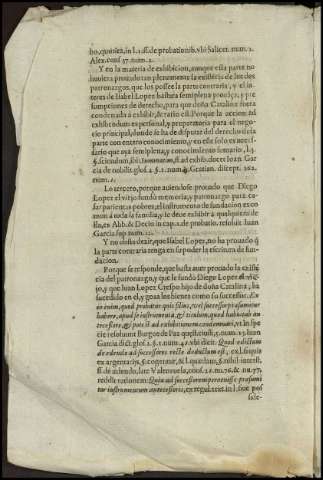 bo, quæsita, in l. 2. ff. de probationib. vbi Salicet. num. 2.
Alex. cons. 37. num. 2.
Y en la materia de exhibicion, aunque esta parte no
huuiera prouado tan plenamente la existẽcia de los dos
patronazgos, que los possee la parte contraria, y el in-
teres de Isabel Lopez bastara semiplena prouãça, y pre
sumpciones de derecho, para que doña Catalina fuera
condenada à exhibir, & ratio est: Porque la accion ad
exhibendum es personal, y preparatoria para el nego-
cio principal, donde se ha de disputar del derecho de la
parte con entero conocimiento, y en este solo es neces-
sario que aya semiplena, y conocimiento sumario, l. 3.
§. sciendum, ibi: summatim, ff. ad exhibend. et ex Ioan Gar
cia de nobilit. glos. 1 §. 1. num. Gratian. discept. 262.
num. 2.
Lo tercero, porque auiendose prouado que Diego
Lopez el viejo fundò memoria, y patronazgo para ca-
sar parientas pobres, el instrumento de fundacion es co
mun à toda la familia, y se deue exhibir à qualquiera de
ella, ex Abb. & Decio in cap. 1. de probatio. resoluit Iuan
Garcia sup. num.
Y no obsta dezir, que Isabel Lopez, no ha prouado q̃
la parte contraria tenga en su poder la escritura de fun-
dacion.
Porque se responde, que basta auer prouado la existẽ
cia del patronazgo, y que le fundò Diego Lopez el vie-
jo, y que Iuan Lopez Crespo hijo de doña Catalina, ha
sucedido en el, y goza los bienes como su successor. Nã
in eum, quod probatur quis filius, vel successor præsumitur
habere, apud se instrumenta, & titulum, quod habuit ab an
tecessore, & potest ad exhibitionem condemnari, vt in spe
cie resoluunt Burgos de Paz quæst. num. 15. Iuan
Garcia dict. glos. §. 1. num. 42. vbi dicit: Quod edictum
de edendo ad successores recte deductum est, ex l. siquis
ex argentarijs. §. cogentur, & l. quædam, §. nihil interest,
ff. de edendo, late Valençuela, cons. nu. 76. & nu. 77.
reddit rationem: Quia ad successorem peruenisse præsumi
tur instrumentum antecessoris, ex regul. text. in l. siue pos
side-